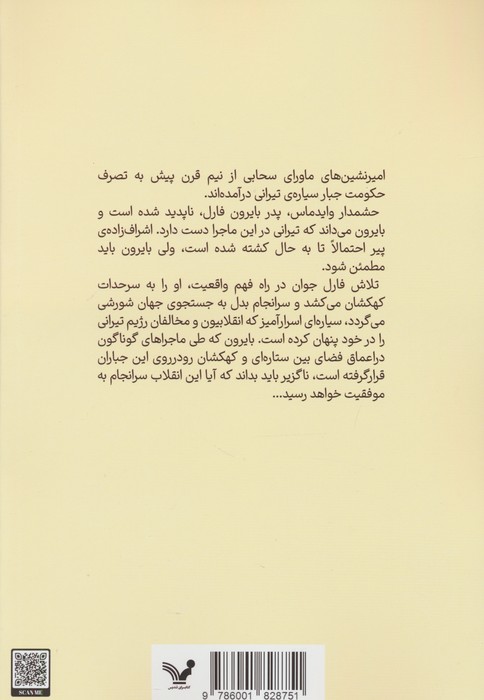 امیرنشین‌های ماورای سحابی از نیم قرن پیش به تصرف
حکومت جبار سیاره‌ی تیرانی درآمده‌اند.
حشمدار وایدماس، پدر بایرون فارل، ناپدید شده است و
بایرون می‌داند که تیرانی در این ماجرا دست دارد. اشراف‌زاده‌ی
پیر احتمالاً تا به حال کشته شده است، ولی بایرون باید
مطمئن شود.
تلاش فارل جوان در راه فهم واقعیت، او را به سرحدات
کهکشان می‌کشد و سرانجام بدل به جستجوی جهان شورشی
می‌گردد، سیاره‌ای اسرارآمیز که انقلابیون و مخالفان رژیم تیرانی
را در خود پنهان کرده است. بایرون که طی ماجراهای گوناگون
دراعماق فضای بین ستاره‌ای و کهکشان رودرروی این جباران
قرارگرفته است، ناگزیر باید بداند که آیا این انقلاب سرانجام به
موفقیت خواهد رسید...
SCAN ME
کتابسرای تندیس
9 786001 828751